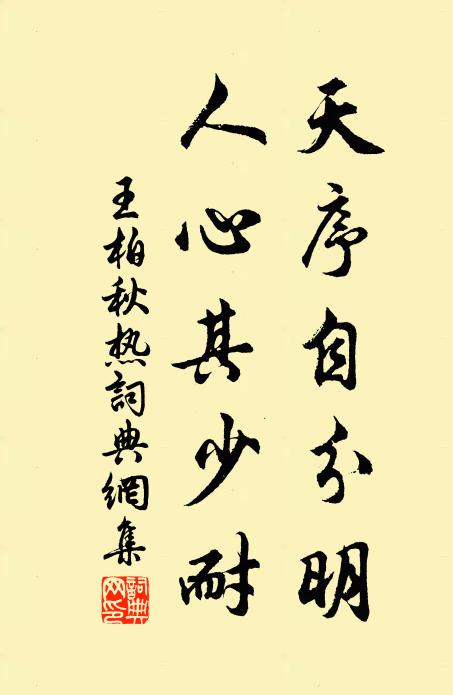 天序自分明
人心其少耐
王柏秋热詞典網集
詞典网印